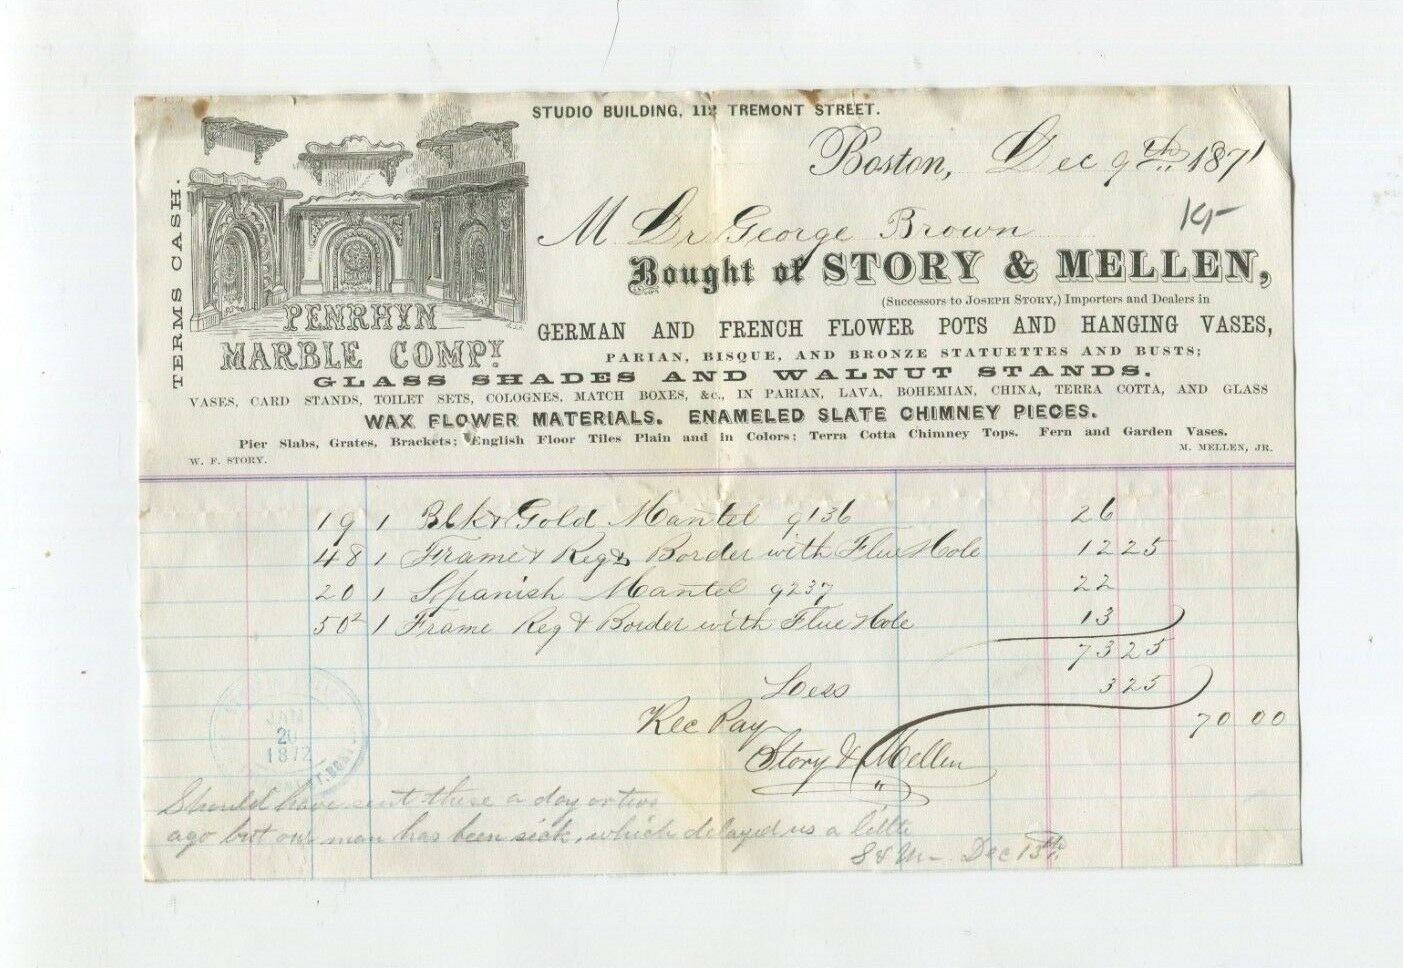 STUDIO BUILDING, 112 TREMONT STREET.
Boston, Dec 9th 1871
TERMS CASH.
M Dr George Brown
Bought of STORY & MELLEN,
(Successors to JOSEPH STORY,) Importers and Dealers in
PENRHYN
MARBLE COMPY.
GERMAN AND FRENCH FLOWER POTS AND HANGING VASES,
PARIAN, BISQUE, AND BRONZE STATUETTES AND BUSTS;
GLASS SHADES AND WALNUT STANDS.
VASES, CARD STANDS, TOILET SETS, COLOGNES, MATCH BOXES, &c., IN PARIAN, LAVA, BOHEMIAN, CHINA, TERRA COTTA, AND GLASS
WAX FLOWER MATERIALS. ENAMELED SLATE CHIMNEY PIECES.
Pier Slabs, Grates, Brackets; English Floor Tiles Plain and in Colors; Terra Cotta Chimney Tops. Fern and Garden Vases.
W. F. STORY. M. MELLEN, JR.
19 1 Blk & Gold Mantel 9136 26
48 1 Frame & Reg & Border with Flue Hole 12 25
20 1 Spanish Mantel 9237 22
50 2 1 Frame Reg & Border with Flue Hole 13
73 25
Less 3 25
70 00
Rec Pay
Story & Mellen
JAN
20
1872
Should have sent these a day or two
ago but our man has been sick, which delayed us a little
S & M Dec 13th